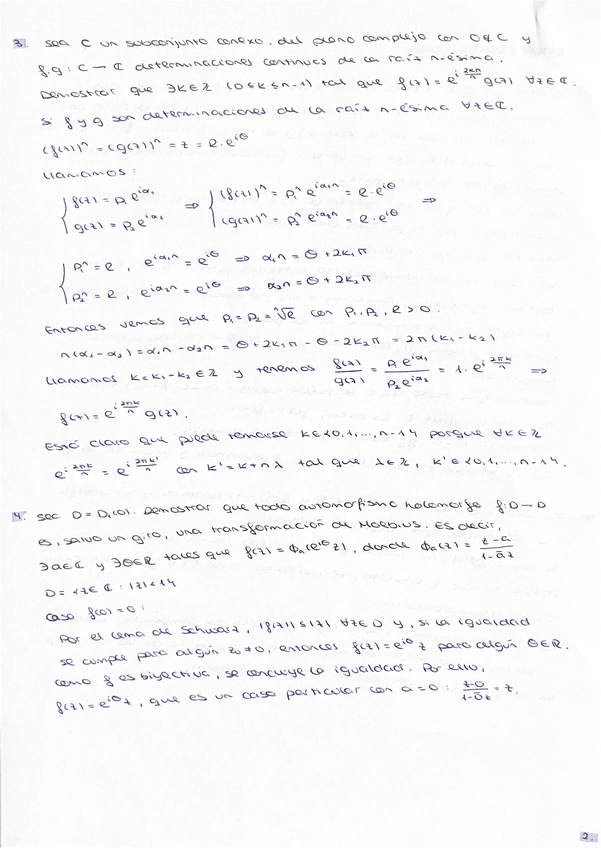 3. Sea C un subconjunto conexo. del plano complejo con 0∉C y
f,g: C → ℂ determinaciones continuas de la raíz n-ésima.
Demostrar que ∃k∈ℤ (0≤k≤n-1) tal que f(z) = e^{i 2πk/n} g(z) ∀z∈ℂ.
Si f y g son determinaciones de la raíz n-ésima ∀z∈ℂ.
(f(z))^n = (g(z))^n = z = R·e^{iθ}
Llamamos:
{ f(z) = ρ₁ e^{iα₁} ⇒ { (f(z))^n = ρ₁^n e^{iα₁n} = R·e^{iθ} ⇒
{ g(z) = ρ₂ e^{iα₂} { (g(z))^n = ρ₂^n e^{iα₂n} = R·e^{iθ}
{ ρ₁^n = R, e^{iα₁n} = e^{iθ} ⇒ α₁n = θ + 2k₁π
{ ρ₂^n = R, e^{iα₂n} = e^{iθ} ⇒ α₂n = θ + 2k₂π
Entonces vemos que ρ₁ = ρ₂ = ⁿ√R con ρ₁, ρ₂, R > 0.
n(α₁-α₂) = α₁n - α₂n = θ + 2k₁π - θ - 2k₂π = 2π(k₁-k₂)
Llamamos k = k₁-k₂∈ℤ y tenemos f(z)/g(z) = ρ₁e^{iα₁}/ρ₂e^{iα₂} = 1·e^{i 2πk/n} ⇒
f(z) = e^{i 2πk/n} g(z).
Está claro que puede tomarse k∈{0,1,...,n-1} porque ∀k∈ℤ
e^{i 2πk/n} = e^{i 2πk'/n} con k' = k+nλ tal que λ∈ℤ, k'∈{0,1,...,n-1}.
4. Sea D = D₁(0). Demostrar que todo automorfismo holomorfo f: D → D
es, salvo un giro, una transformación de Moebius. Es decir,
∃a∈ℂ y ∃θ∈ℝ tales que f(z) = Φₐ(e^{iθ}z), donde Φₐ(z) = (z-a)/(1-āz)
D = {z∈ℂ : |z|<1}
Caso f(0) = 0:
Por el Lema de Schwarz, |f(z)|≤|z| ∀z∈D y, si la igualdad
se cumple para algún z₀≠0, entonces f(z) = e^{iθ} z para algún θ∈ℝ.
Como f es biyectiva, se concluye la igualdad. Por ello,
f(z) = e^{iθ}z, que es un caso particular con a=0: (z-0)/(1-0̄z) = z.
2.